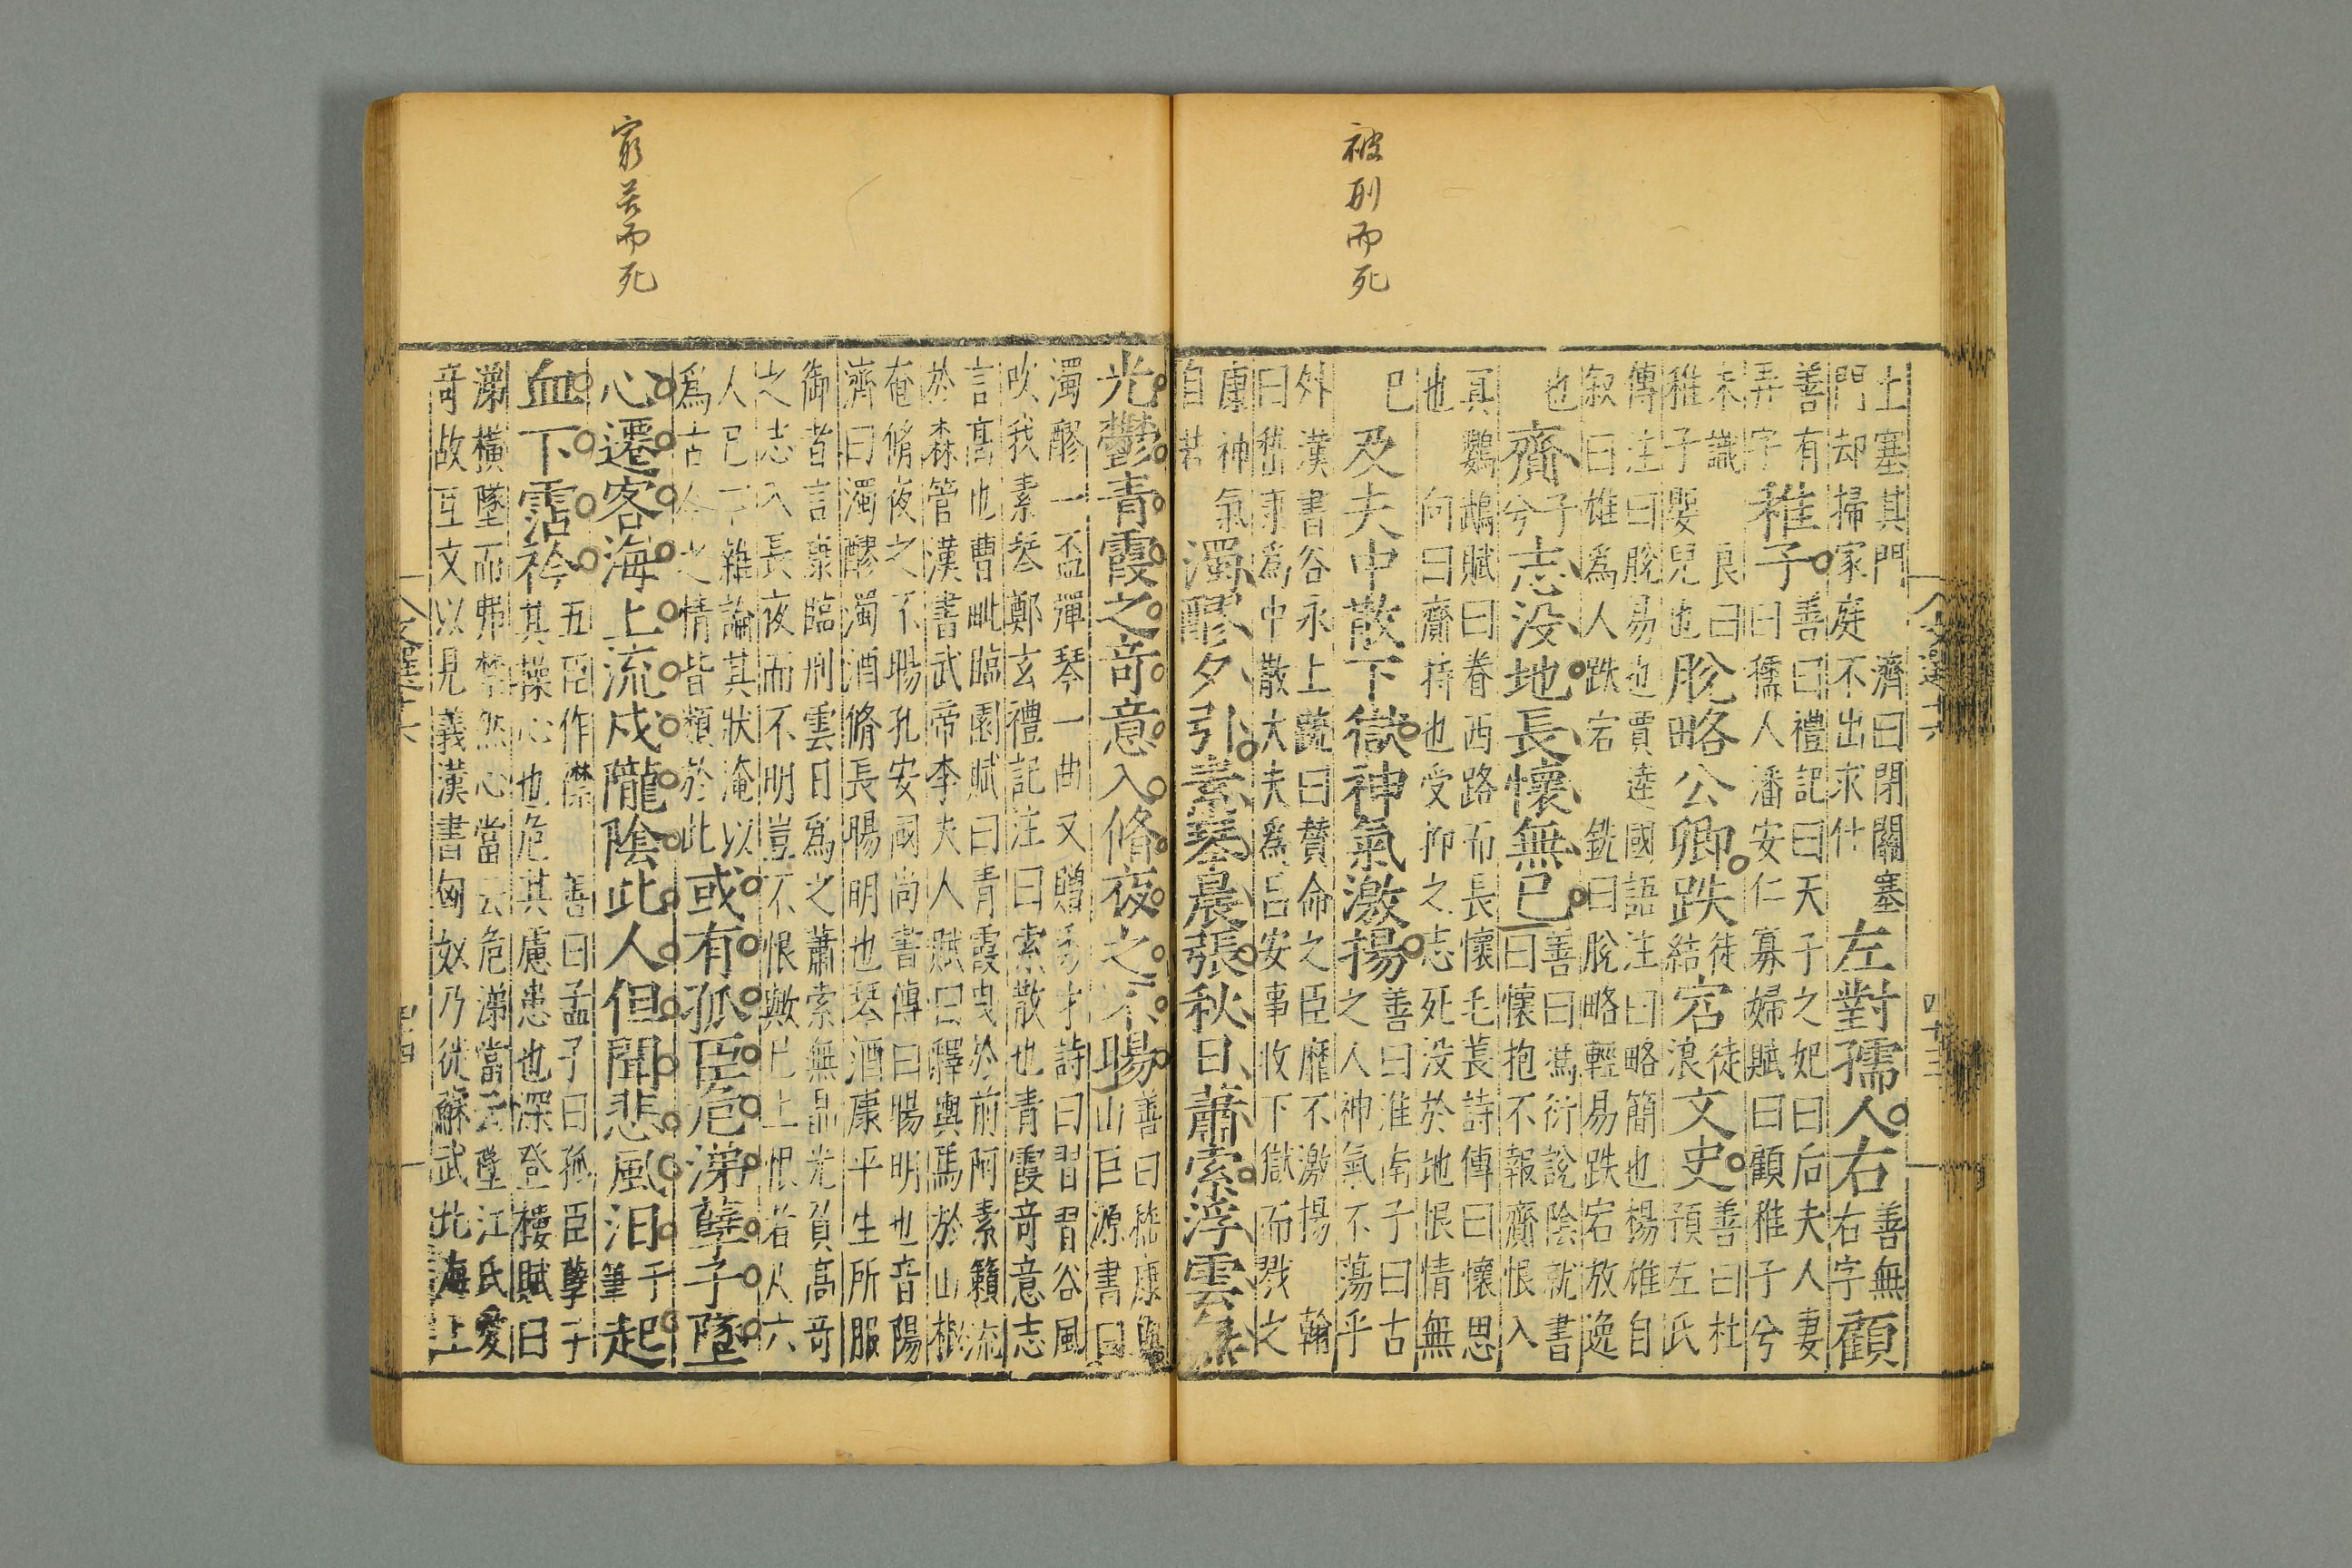 被刑而死
文選十六
四十三
土塞其門　濟曰閉關塞
門却掃家庭不出求仕
左對孺人右
善無
右字
顧
善有
弄字
稚子
善曰禮記曰天子之妃曰后夫人妻
曰孺人潘安仁寡婦賦曰顧稚子兮
未識　良曰
稚子嬰兒也
脫略公卿跌
徒
結
宕
徒
浪
文史
善曰杜
預左氏
傳注曰脫易也賈逵國語注曰略簡也楊雄自
叙曰雄為人跌宕　銑曰脫略輕易跌宕放逸
也
齎
子
兮
志没地長懷無已
善曰馮衍說陰就書
曰懷抱不報齎恨入
冥鸚鵡賦曰眷西路而長懷毛萇詩傳曰懷思
也　向曰齎持也受抑之志死没於地恨情無
已
及夫中散下獄神氣激揚
善曰淮南子曰古
之人神氣不蕩乎
外漢書谷永上疏曰贊命之臣靡不激揚　翰
曰嵇康為中散大夫為吕安事收下獄而戮之
康神氣
自若
濁醪夕引素琴晨張秋日蕭索浮雲無
窮苦而死
光鬱青霞之奇意入脩夜之不暘
善曰嵇康與
山巨源書曰
濁醪一盃彈琴一曲又贈秀才詩曰習習谷風
吹我素琴鄭玄禮記注曰索散也青霞奇意志
言高也曹毗臨園賦曰青霞曳於前阿素籟流
於森管漢書武帝李夫人賦曰釋輿馬於山椒
奄脩夜之不暘孔安國尚書傳曰暘明也音陽
濟曰濁醪濁酒脩長暘明也琴酒康平生所服
御者言康臨刑雲日為之蕭索無晶光負高奇
之志入長夜而不明豈不恨歟已上恨者凡六
人已下雜論其狀淹以
為古今之情皆類於此
或有孤臣危涕孽子墜
心遷客海上流戍隴陰此人但聞悲風汨
于
筆
起
血下霑衿
五臣作襟　善曰孟子曰孤臣孽子
其操心也危其慮患也深登樓賦曰
涕橫墜而弗禁然心當云危涕當云墜江氏愛
奇故互文以見義漢書匈奴乃徙蘇武北海上